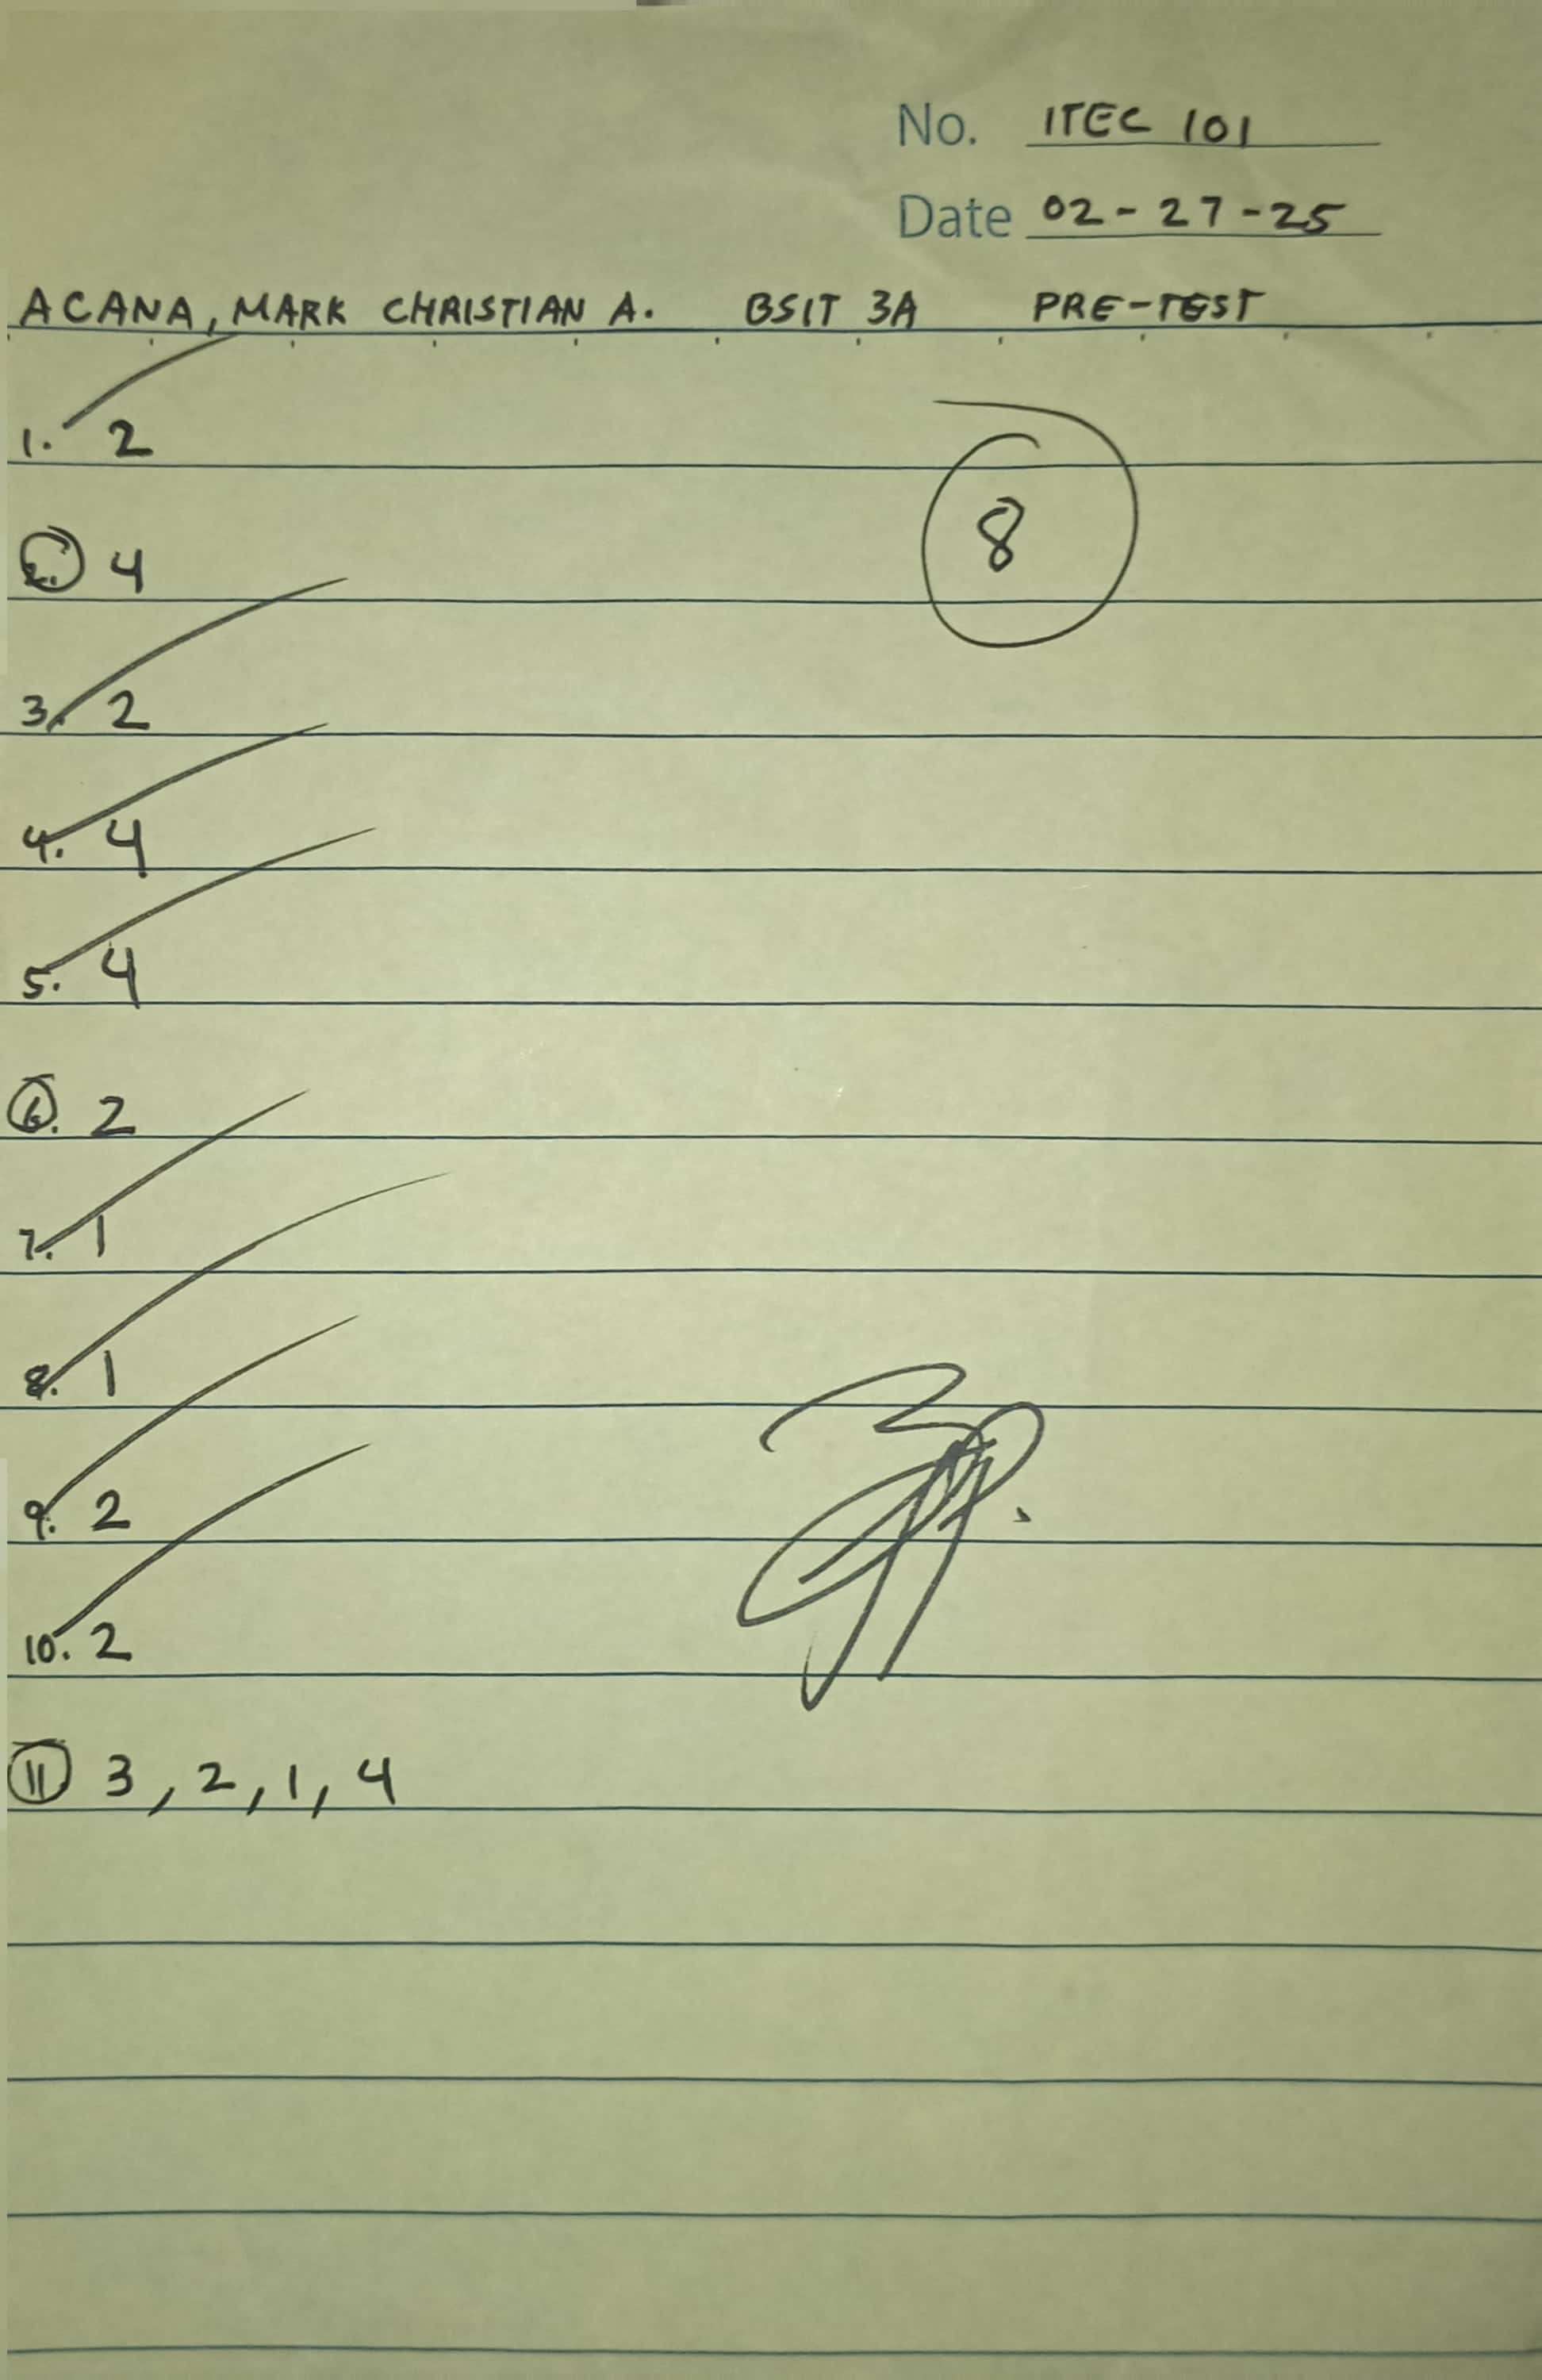 No. ITEC 101
Date 02-27-25
ACANA, MARK CHRISTIAN A. BSIT 3A PRE-TEST
1. 2
8
2. 4
3. 2
4. 4
5. 4
6. 2
7. 1
8. 1
9. 2
10. 2
11 3, 2, 1, 4